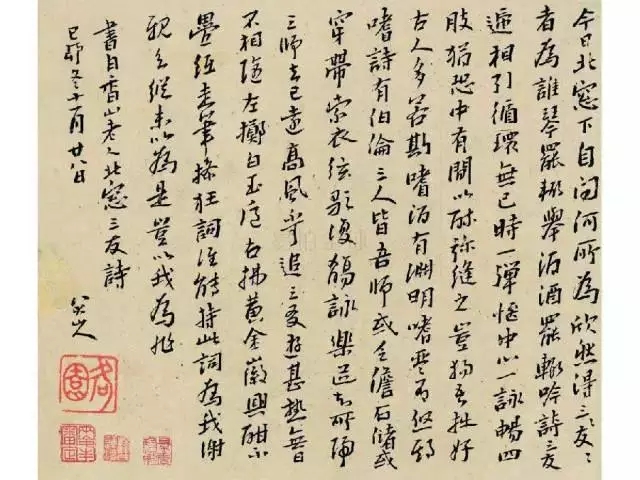 今日北窓下自问何所為欣然得三友〻〻
者為誰琴罷輒舉酒酒罷輒吟詩三友
遞相引循環無已時一彈愜中心一詠暢四
肢猶恐中有間以酥弥縫之豈獨吾拙好
古人多若斯嗜酒有淵明嗜琴有啓期
嗜詩有伯倫三人皆吾師或乏儋石儲或
穿帶索衣弦歌復觴詠樂道知所歸
三師去已遠高風不可追三友遊甚熟無日
不相隨左擲白玉卮右拂黃金徽興酣不
疊紙走筆操狂詞誰能持此詞為我謝
親知縱未以為是豈以我為非
書白香山老人北窓三友詩
己卯冬十一月廿八日
八大山人